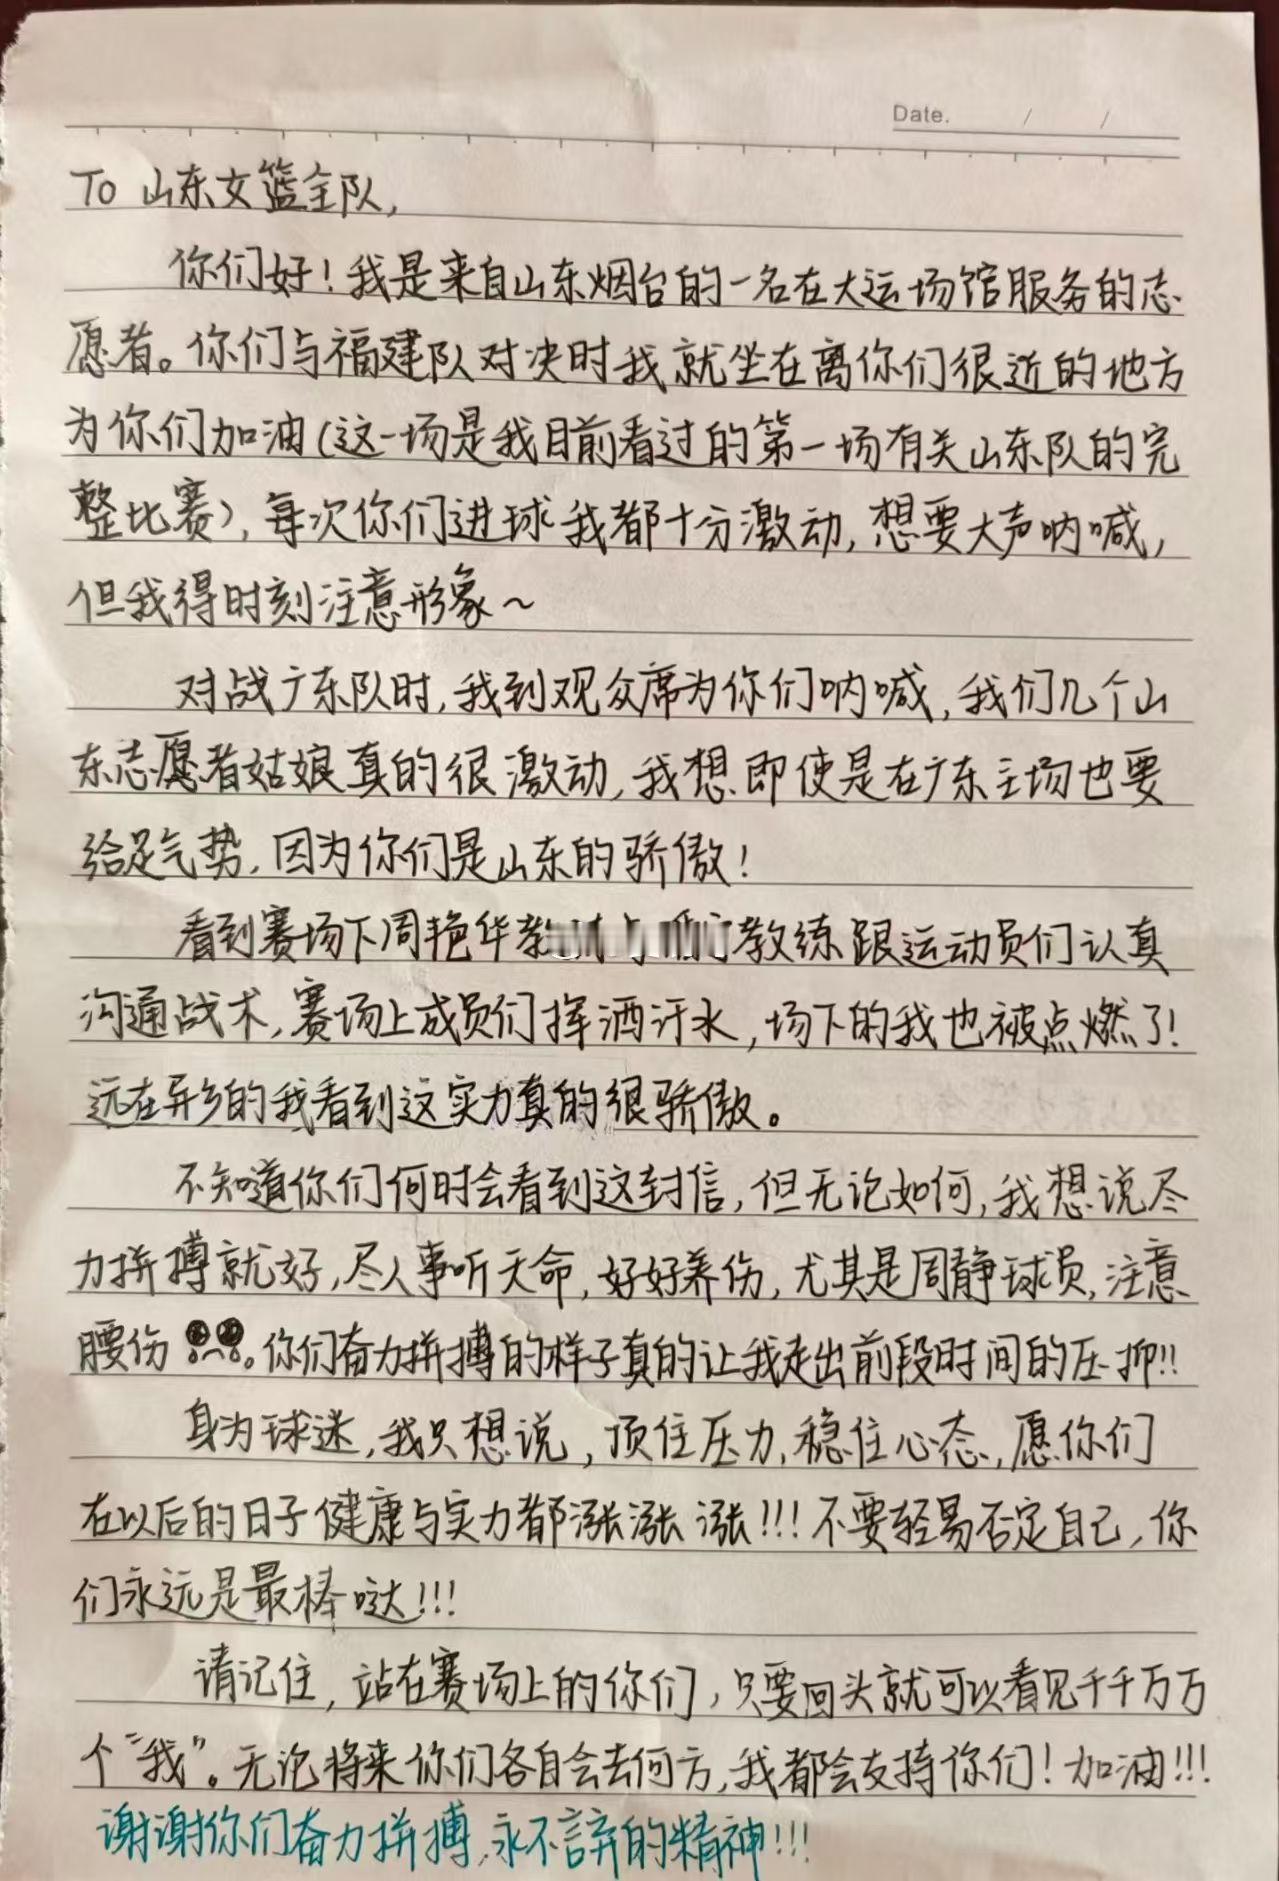 Date. / /
To 山东女篮全队,
你们好!我是来自山东烟台的一名在大运场馆服务的志
愿者。你们与福建队对决时我就坐在离你们很近的地方
为你们加油(这一场是我目前看过的第一场有关山东队的完
整比赛),每次你们进球我都十分激动,想要大声呐喊,
但我得时刻注意形象~
对战广东队时,我到观众席为你们呐喊,我们几个山
东志愿者姑娘真的很激动,我想即使是在广东主场也要
给足气势,因为你们是山东的骄傲!
看到赛场下周艳华教 教练跟运动员们认真
沟通战术,赛场上成员们挥洒汗水,场下的我也被点燃了!
远在异乡的我看到这实力真的很骄傲。
不知道你们何时会看到这封信,但无论如何,我想说尽
力拼搏就好,尽人事听天命,好好养伤,尤其是周静球员,注意
腰伤。你们奋力拼搏的样子真的让我走出前段时间的压抑!!
身为球迷,我只想说,顶住压力,稳住心态,愿你们
在以后的日子健康与实力都涨涨涨!!!不要轻易否定自己,你
们永远是最棒哒!!!
请记住,站在赛场上的你们,只要回头就可以看见千千万万
个“我”。无论将来你们各自会去何方,我都会支持你们!加油!!!
谢谢你们奋力拼搏,永不言弃的精神!!!